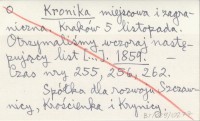 Kronika miejscowa i zagra-
niczna. Kraków 5 listopada.
Otrzymaliśmy wczoraj nastę-
pujący list [...]. 1859. —
Czas nry 255, 256, 262.
Spółka dla rozwoju Szczaw-
nicy, Krościenka i Krynicy.